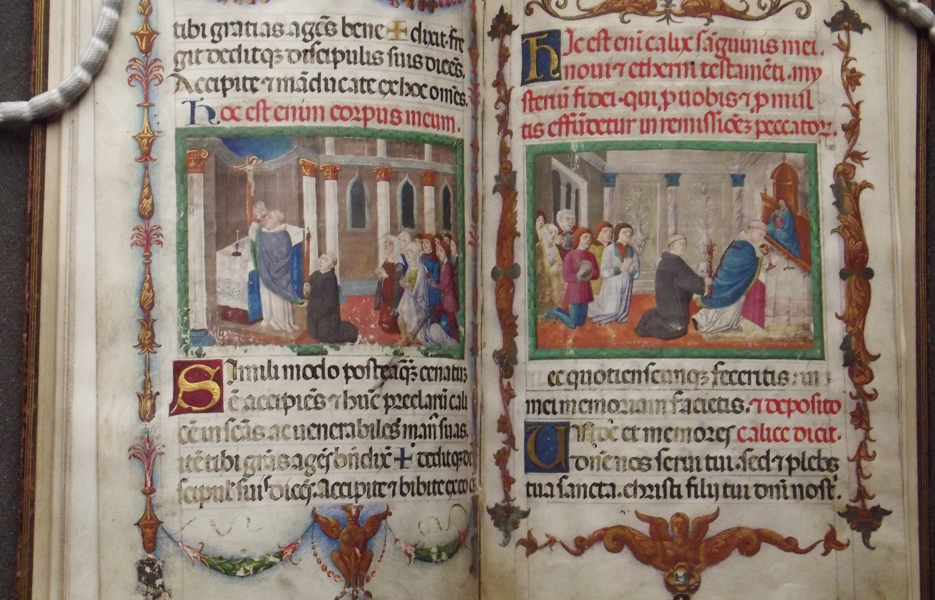 tibi gratias agēs bene + dixit·fre
git deditqꝫ discipulis suis dicēs,
Accipite ⁊ māducate ex hoc omēs.
Hoc est enim corpus meum.
Simili modo posteaqꝫ cenatus
ē accipiēs ⁊ hūc preclarū cali
cē in scās ac venerabiles manꝰ suas.
itē tibi grās agēs bn̄dix̄ + deditqꝫ di
scipul' suis dicēs. Accipite ⁊ bibite ex eo
Hic est enī calix sāguinis mei.
noui ⁊ etherni testamēti. my
steriū fidei·qui, p uobis ⁊ p mul
tis effūdetur in remissiōeꝫ peccatoꝝ.
ec quotienscūqꝫ feceritis
mei memoriam facietis. ⁊ deposito
et memores calice dicit·
dn̄e nos serui tui. sed ⁊ plebs
tua sancta. christi filij tui dn̄i nostꝛ̄.